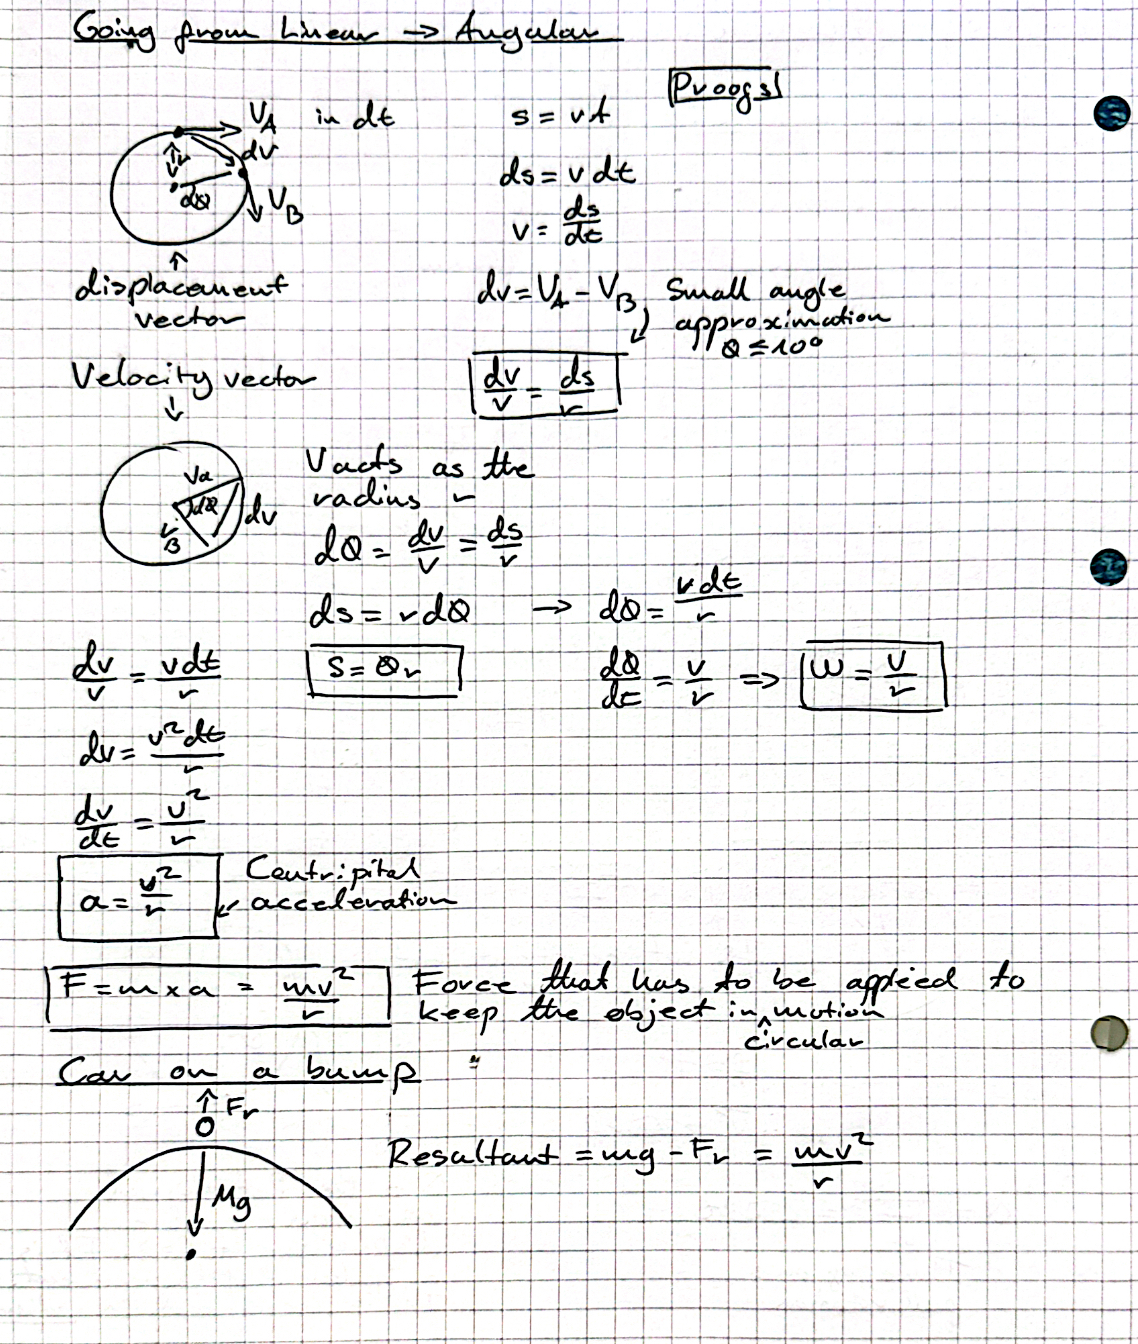 Going from Linear → Angular
Proofs
V_A in dt
dv
r
dθ
V_B
↑
displacement
vector
s = vt
ds = v dt
v = ds/dt
dv = V_A - V_B
Small angle
approximation
θ ≤ 10°
dv/v = ds/r
Velocity vector
↓
Va
dθ
dv
V_B
V acts as the
radius r
dθ = dv/v = ds/r
ds = r dθ → dθ = v dt/r
s = θr
dθ/dt = v/r => ω = v/r
dv/v = vdt/r
dv = v²dt/r
dv/dt = v²/r
a = v²/r
Centripital
acceleration
F = m x a = mv²/r
Force that has to be applied to
keep the object in circular motion
Car on a bump
↑ Fr
Mg
Resultant = mg - Fr = mv²/r